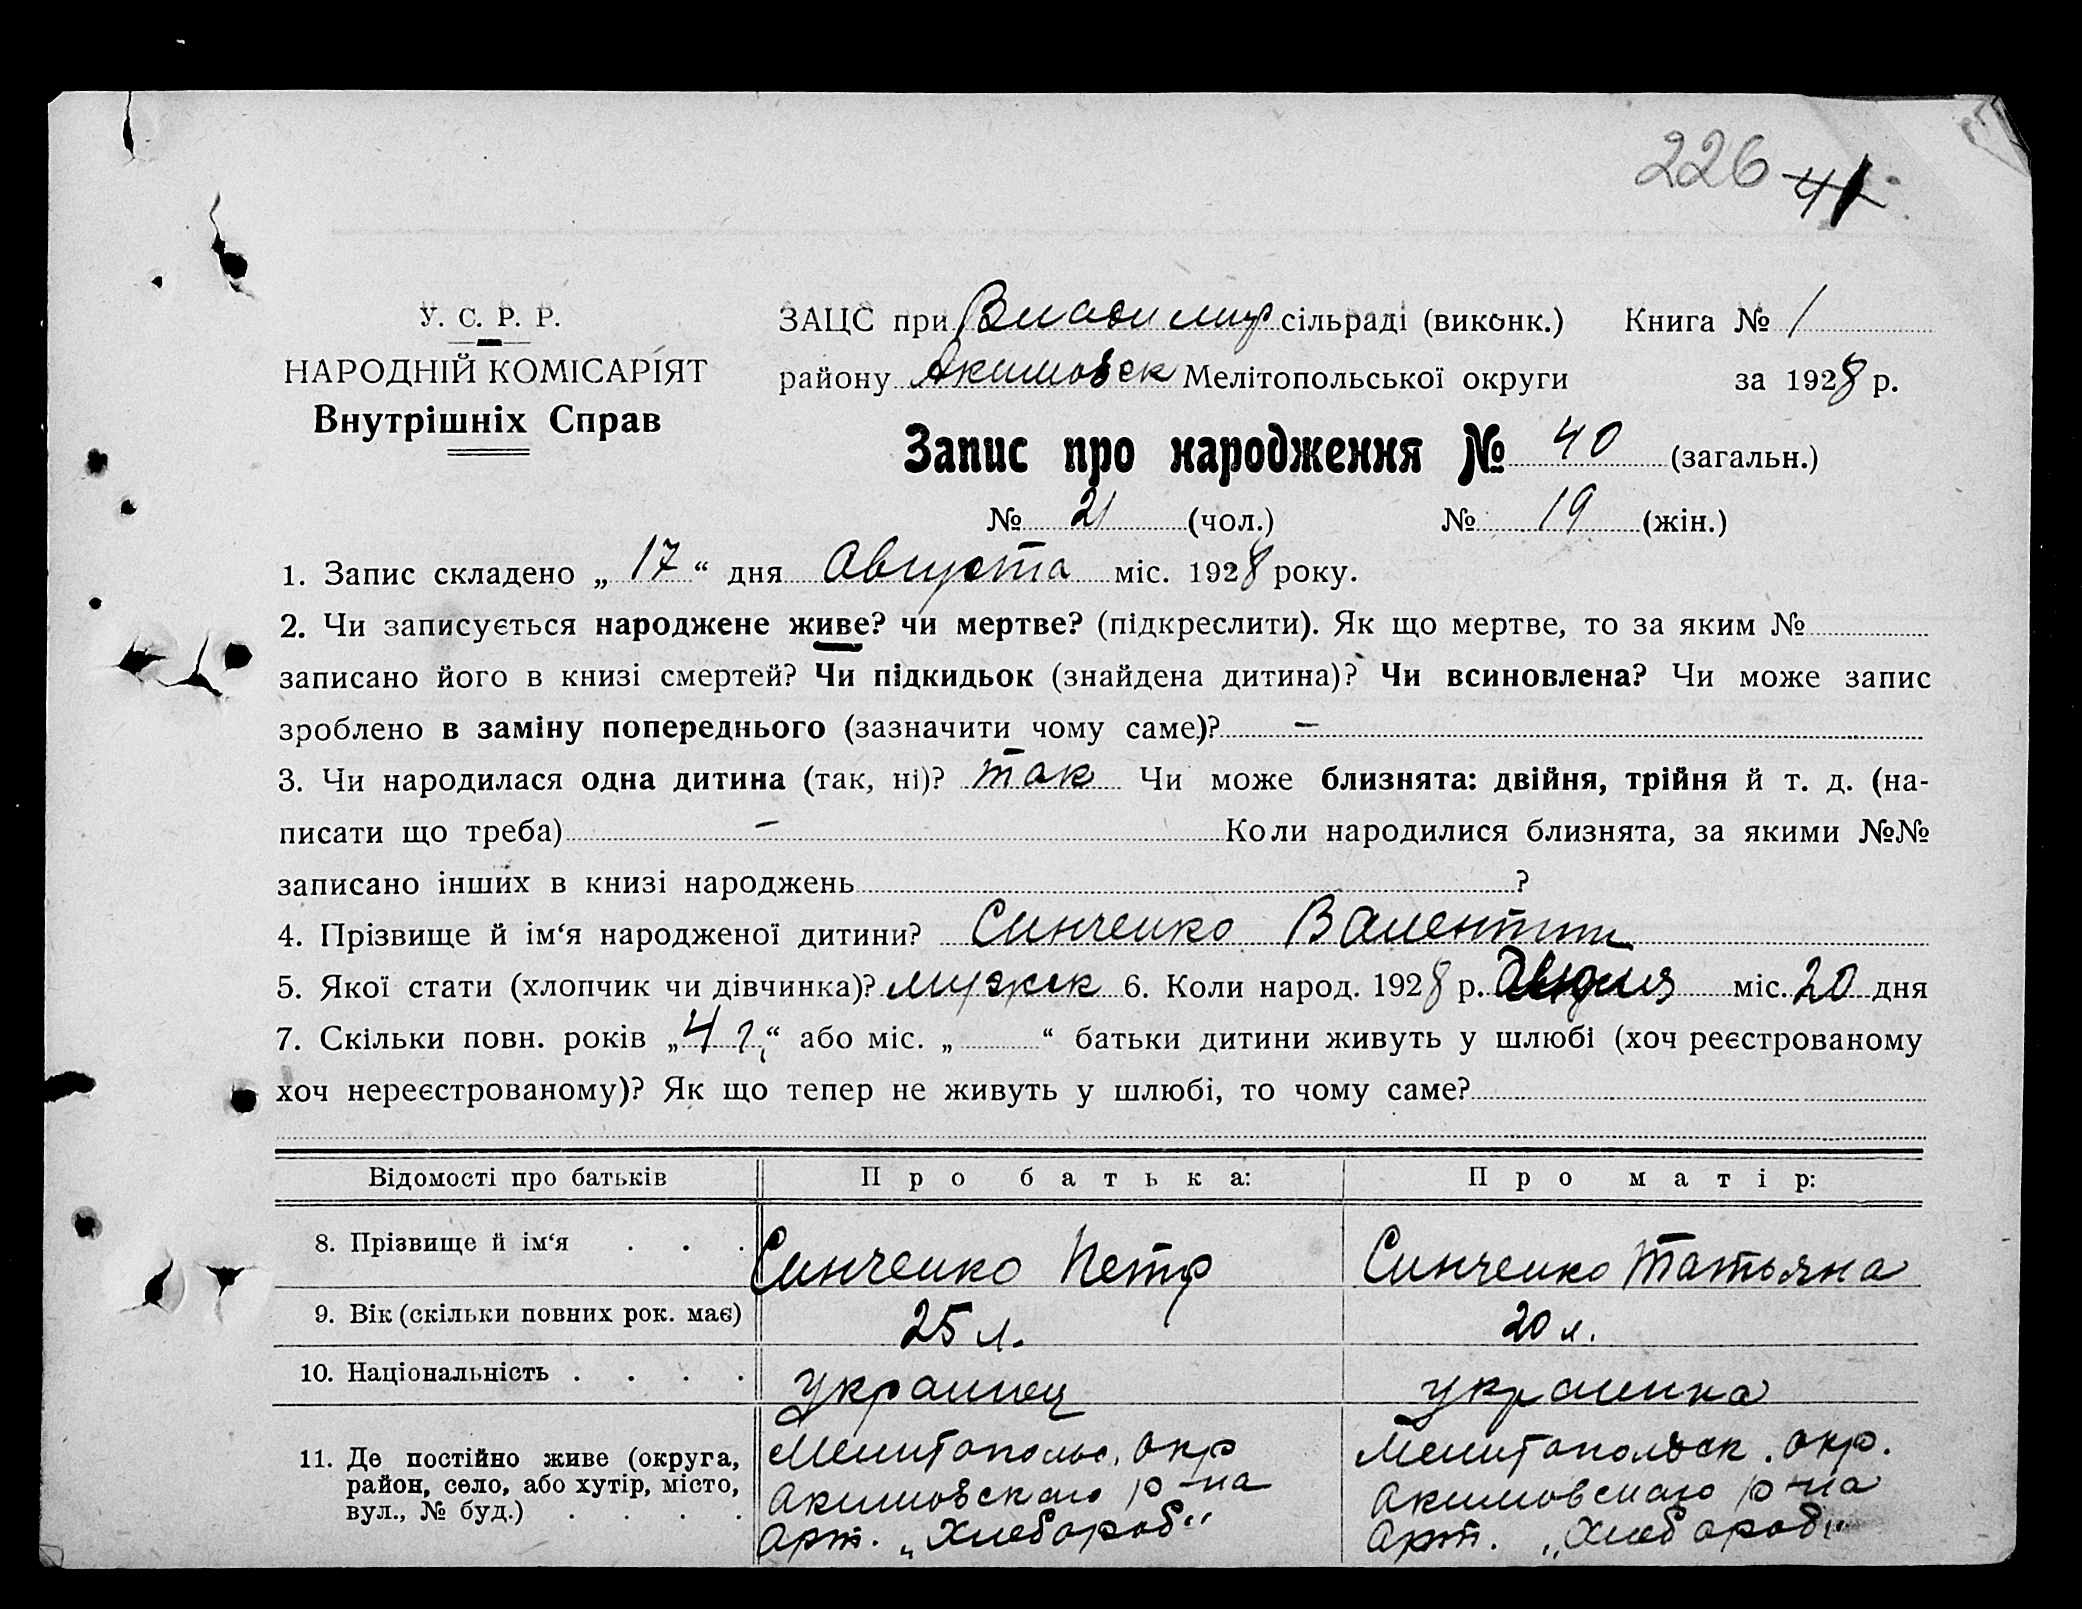 226 41
У. С. Р. Р.
НАРОДНІЙ КОМІСАРІЯТ
Внутрішніх Справ
ЗАЦС при Владимир сільраді (виконк.) Книга № 1
району Акимовск Мелітопольської округи за 1928 р.
Запис про народження № 40 (загальн.)
№ 21 (чол.) № 19 (жін.)
1. Запис складено „ 17 “ дня Августа міс. 1928 року.
2. Чи записується народжене живе? чи мертве? (підкреслити). Як що мертве, то за яким №
записано його в книзі смертей? Чи підкидьок (знайдена дитина)? Чи всиновлена? Чи може запис
зроблено в заміну попереднього (зазначити чому саме)? –
3. Чи народилася одна дитина (так, ні)? так Чи може близнята: двійня, трійня й т. д. (на-
писати що треба) – Коли народилися близнята, за якими №№
записано інших в книзі народжень ?
4. Прізвище й ім‘я народженої дитини? Синченко Валентин
5. Якої стати (хлопчик чи дівчинка)? мужск 6. Коли народ. 1928 р. міс. 20 дня
7. Скільки повн. років „ 4 г. “ або міс. „ “ батьки дитини живуть у шлюбі (хоч реєстрованому
хоч нереєстрованому)? Як що тепер не живуть у шлюбі, то чому саме?
Відомості про батьків Про батька: Про матір:
8. Прізвище й ім‘я . . . Синченко Петр Синченко Татьяна
9. Вік (скільки повних рок. має) 25 л. 20 л.
10. Національність . . . . украинец украинка
11. Де постійно живе (округа, Мелитопольс. окр Мелитопольск. окр.
район, село, або хутір, місто, Акимовского р-на Акимовского р-на
вул., № буд.) . . . . Арт. „Хлебороб“ Арт. „Хлебороб“